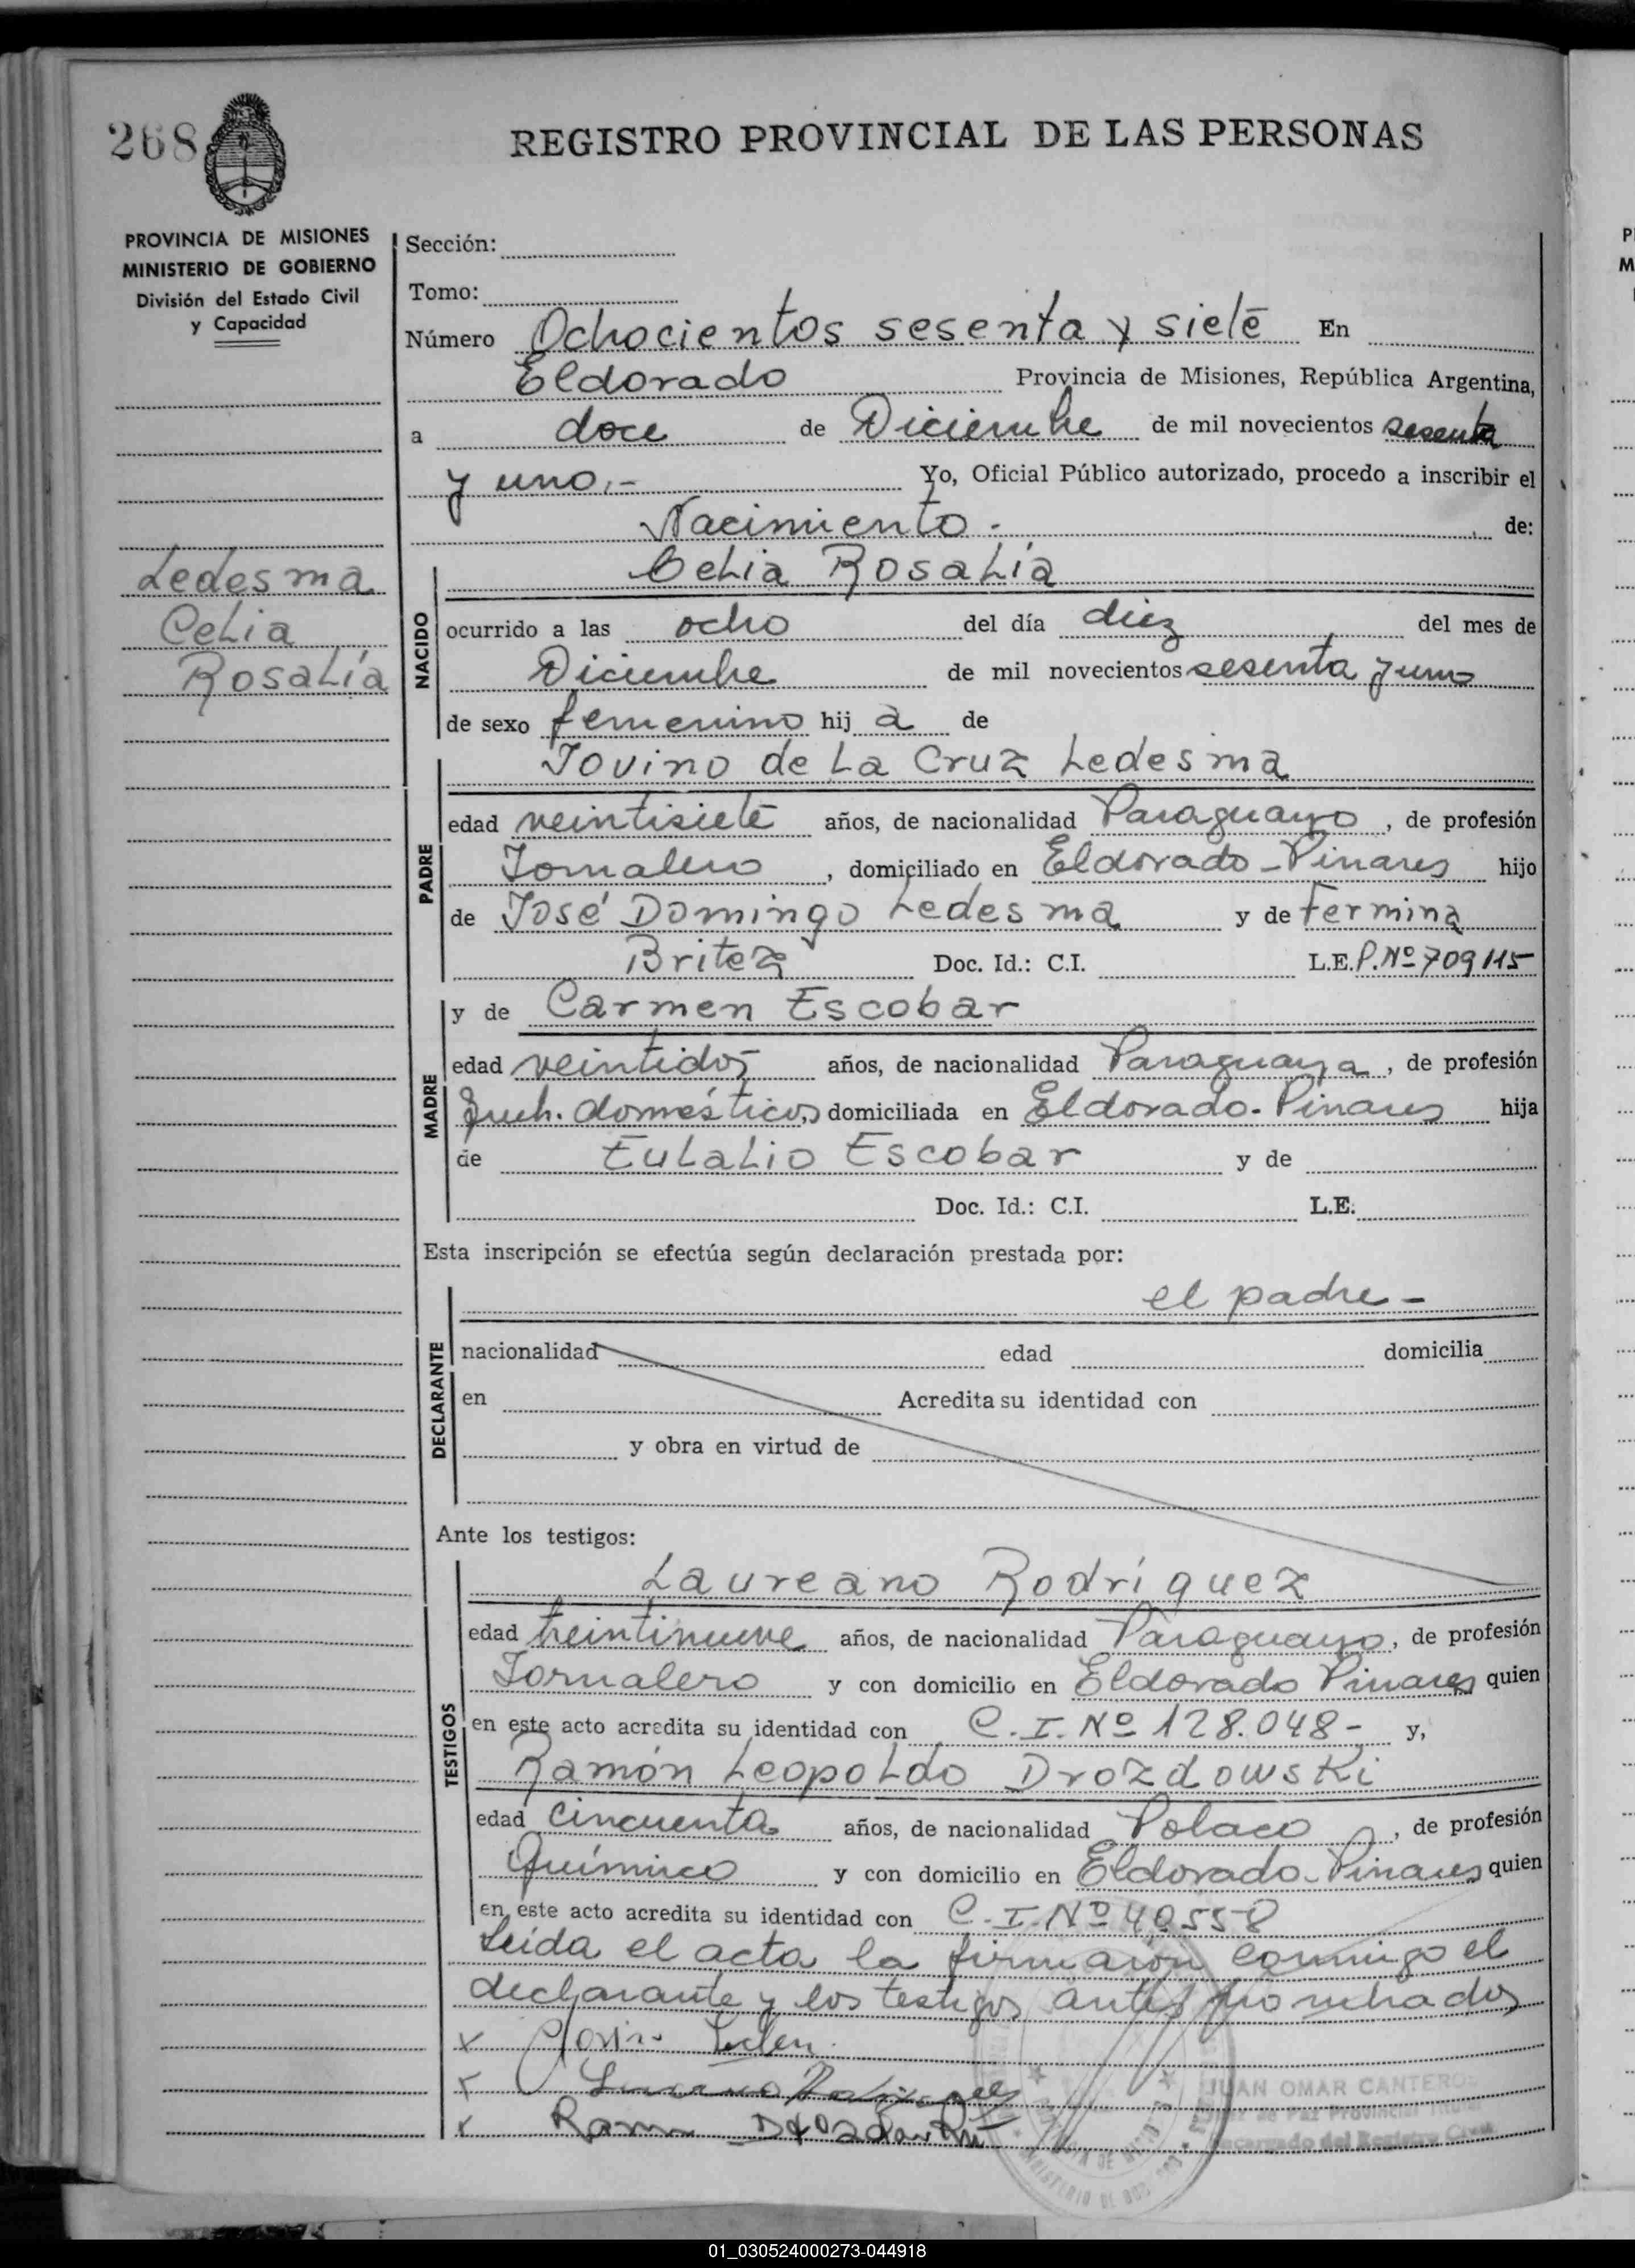 268
REGISTRO PROVINCIAL DE LAS PERSONAS
PROVINCIA DE MISIONES
MINISTERIO DE GOBIERNO
División del Estado Civil
y Capacidad
Ledesma
Celia
Rosalía
Sección:
Tomo:
Número Ochocientos sesenta y siete En
Eldorado Provincia de Misiones, República Argentina,
a doce de Diciembre de mil novecientos sesenta
y uno.- Yo, Oficial Público autorizado, procedo a inscribir el
Nacimiento.- de:
NACIDO
Celia Rosalía
ocurrido a las ocho del día diez del mes de
Diciembre de mil novecientos sesenta y uno
de sexo femenino hij a de
PADRE
Jovino de La Cruz Ledesma
edad veintisiete años, de nacionalidad Paraguayo, de profesión
Jornalero, domiciliado en Eldorado-Pinares hijo
de José Domingo Ledesma y de Fermina
Britez Doc. Id.: C.I. L.E. P.Nº 709115
MADRE
y de Carmen Escobar
edad veintidos años, de nacionalidad Paraguaya, de profesión
domésticos, domiciliada en Eldorado-Pinares hija
de Eulalio Escobar y de
Doc. Id.: C.I. L.E.
Esta inscripción se efectúa según declaración prestada por:
DECLARANTE
el padre-
nacionalidad edad domicilia
en Acredita su identidad con
y obra en virtud de
Ante los testigos:
TESTIGOS
Laureano Rodríguez
edad treintinueve años, de nacionalidad Paraguayo, de profesión
Jornalero y con domicilio en Eldorado Pinares quien
en este acto acredita su identidad con C.I. Nº 128.048- y,
Ramón Leopoldo Drozdowski
edad cincuenta años, de nacionalidad Polaco, de profesión
Químico y con domicilio en Eldorado-Pinares quien
en este acto acredita su identidad con C.I. Nº 40558
Leida el acta la firmaron conmigo el
declarante y los testigos antes nombrados
x
x
x Ramon
JUAN OMAR CANTERO
Juez de Paz Provincial Titular
Encargado del Registro Civil
01_030524000273-044918